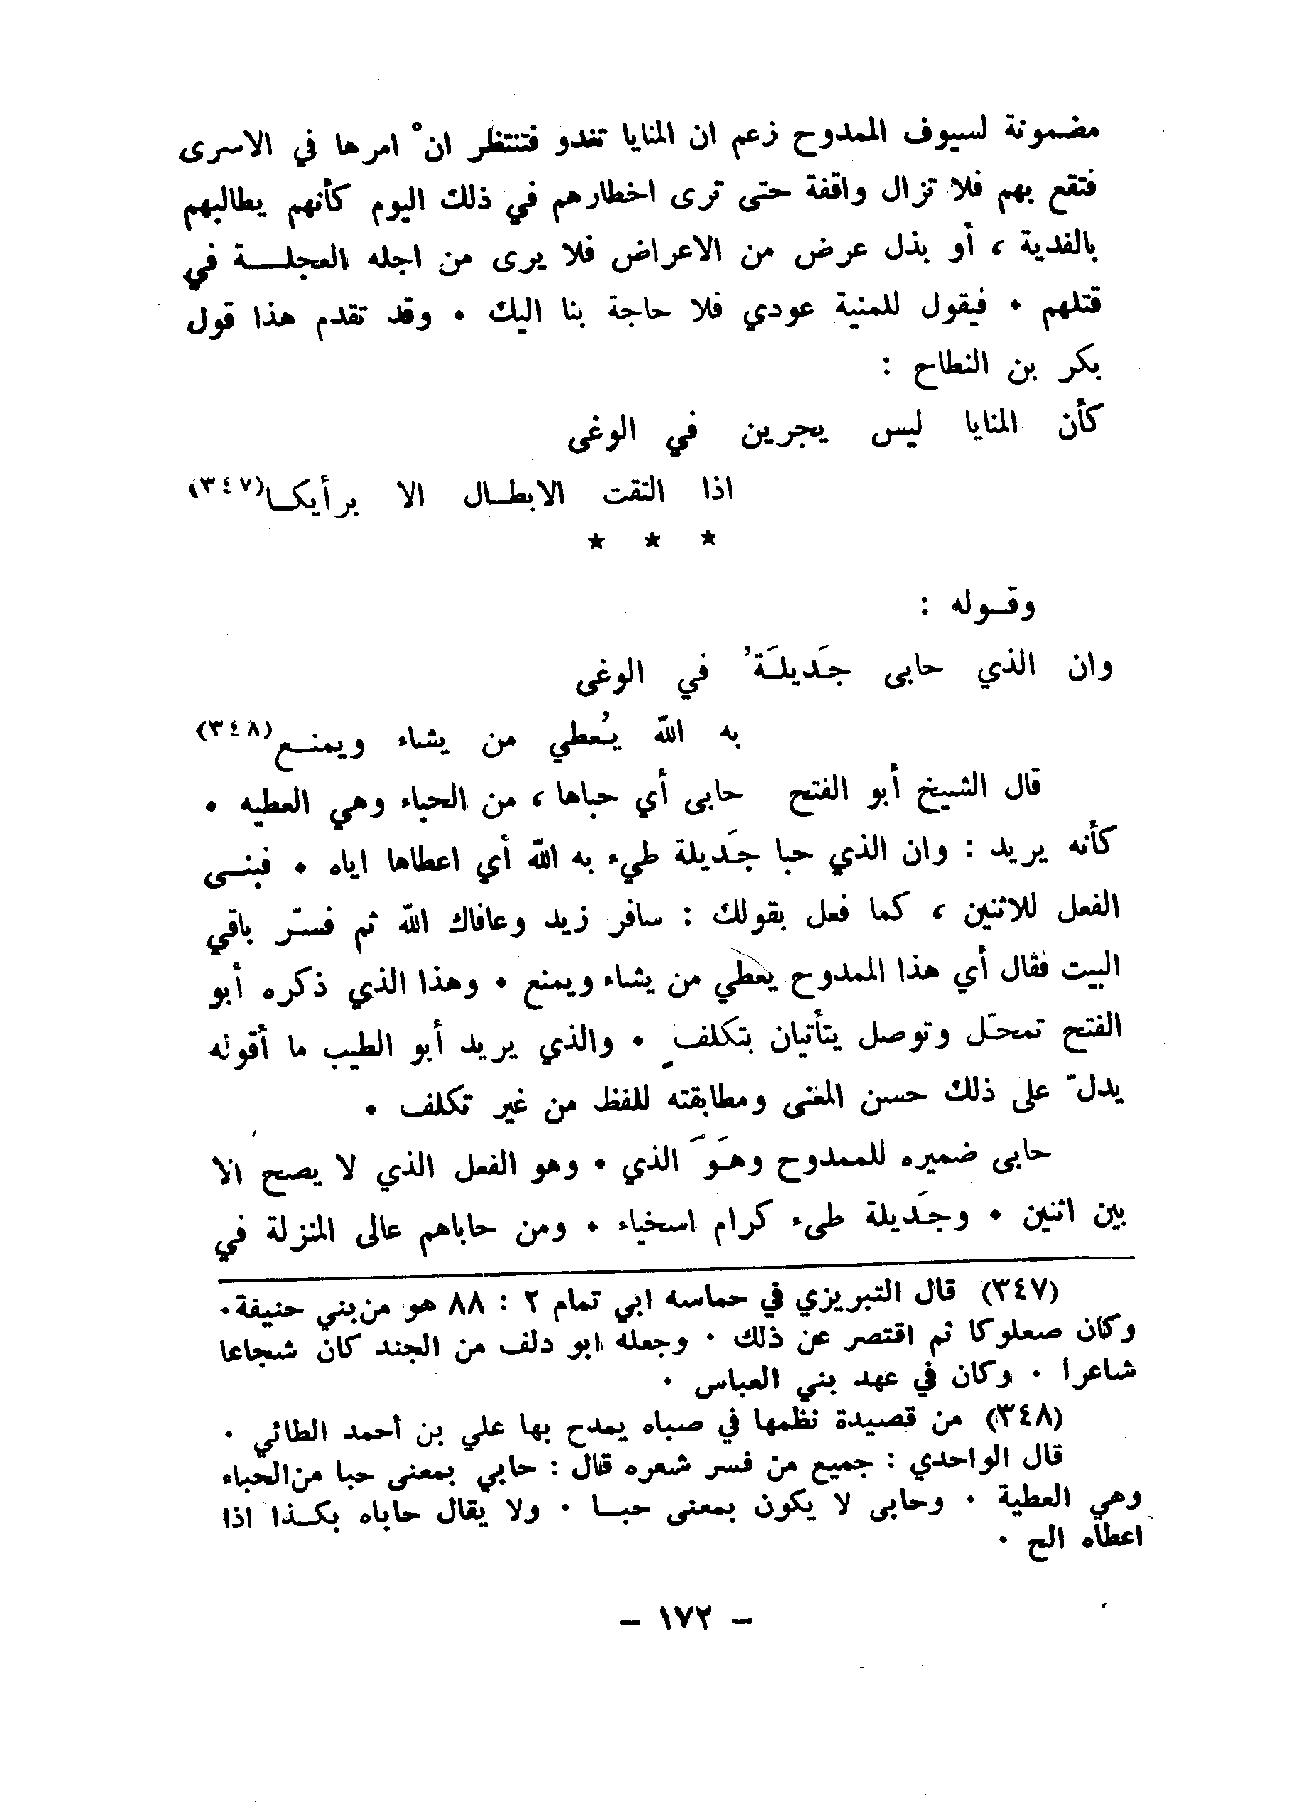 مضمونة لسيوف الممدوح زعم ان المنايا تغدو فتنتظر انْ امرها في الاسرى
فتقع بهم فلا تزال واقفة حتى ترى اخطارهم في ذلك اليوم كأنهم يطالبهم
بالفدية ، أو بذل عرض من الاعراض فلا يرى من اجله العجلــة في
قتلهم ٠ فيقول للمنية عودي فلا حاجة بنا اليك ٠ وقد تقدم هذا قول
بكر بن النطاح :
كأن المنايا ليس يجرين في الوغى
اذا التقت الابطــال الا برأيكــا(٣٤٧)
* * *
وقــوله :
وان الذي حابى جَديلَةَ' في الوغى
به الله يُعطي من يشاء ويمنــع(٣٤٨)
قال الشيخ أبو الفتح حابى أي حباها ، من الحباء وهي العطيه ٠
كأنه يريد : وان الذي حبا جَديلة طيء به الله أي اعطاها اياه ٠ فبنــى
الفعل للاثنين ، كما فعل بقولك : سافر زيد وعافاك الله ثم فسّر باقي
البيت فقال أي هذا الممدوح يعطي من يشاء ويمنع ٠ وهذا الذي ذكره أبو
الفتح تمحّل وتوصل يتأتيان بتكلفٍ ٠ والذي يريد أبو الطيب ما أقوله
يدلّ على ذلك حسن المغنى ومطابقته للفظ من غير تكلف ٠
حابى ضميره للممدوح وهَوَ الذي ٠ وهو الفعل الذي لا يصح الا
بين اثنين ٠ وجَديلة طيء كرام اسخياء ٠ ومن حاباهم عالى المنزلة في
(٣٤٧) قال التبريزي في حماسه ابي تمام ٢ : ٨٨ هو من بني حنيفة٠
وكان صعلوكا ثم اقتصر عن ذلك ٠ وجعله ابو دلف من الجند كان شجاعا
شاعرا ٠ وكان في عهد بني العباس ٠
(٣٤٨) من قصيدة نظمها في صباه يمدح بها علي بن أحمد الطائي ٠
قال الواحدي : جميع من فسر شعره قال : حابي بمعنى حبا من الحباء
وهي العطية ٠ وحابى لا يكون بمعنى حبــا ٠ ولا يقال حاباه بكــذا اذا
اعطاه الح ٠
– ١٧٢ –